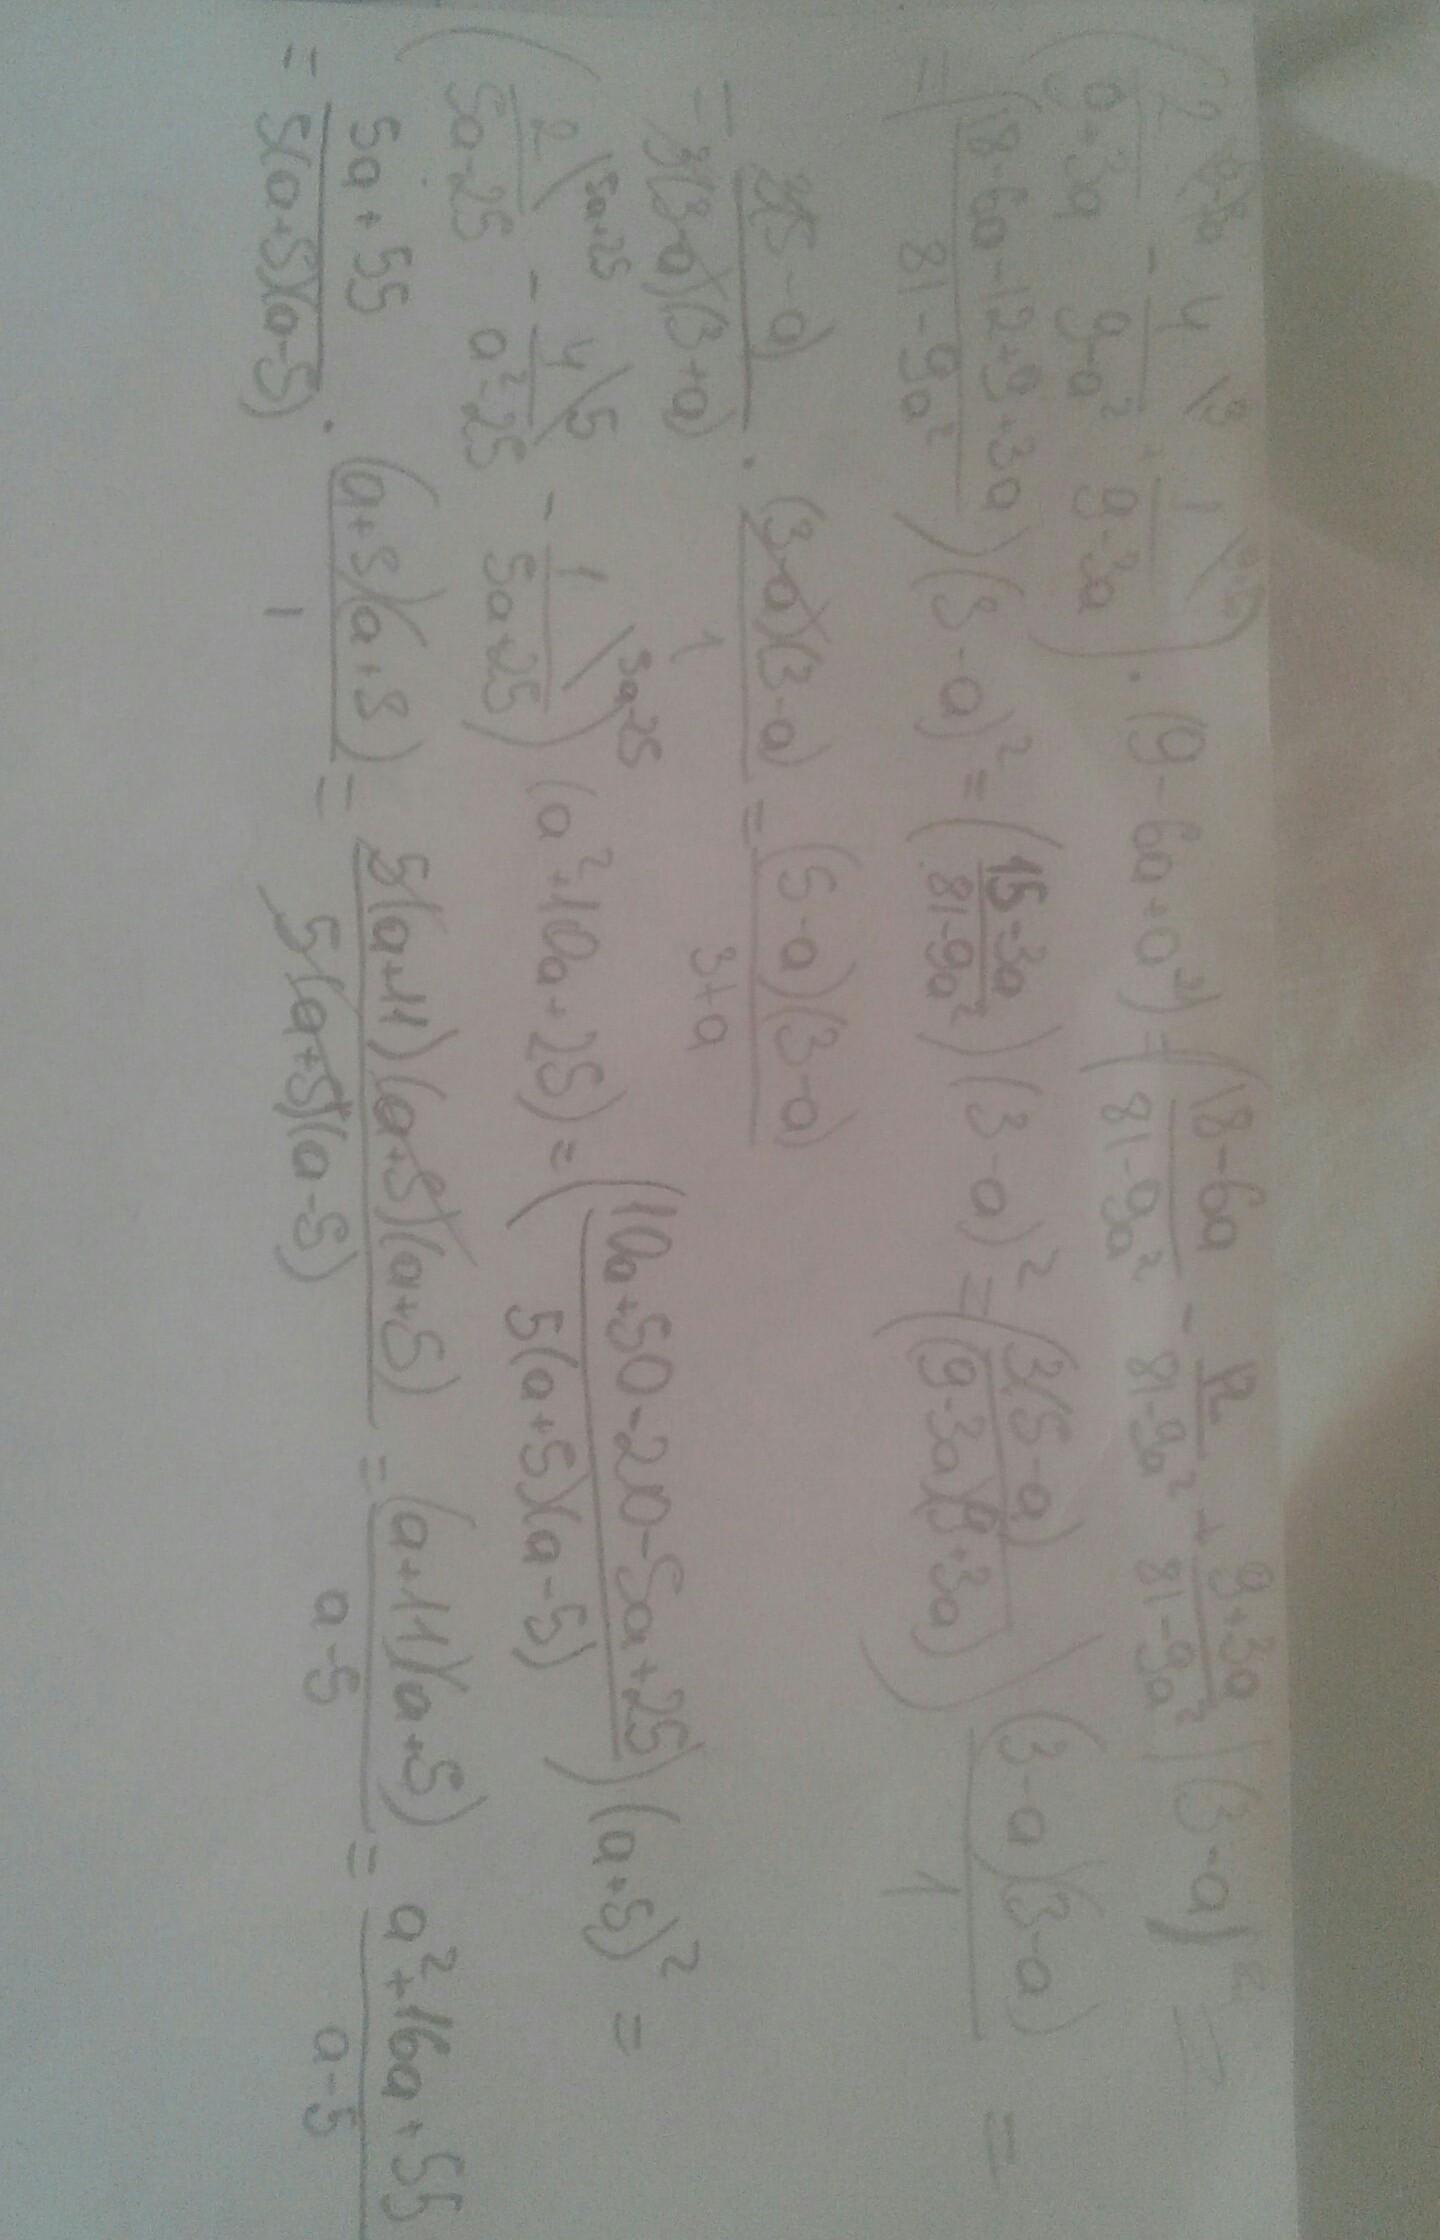 (2\9-3a / 9+3a - 4\9 / 9-a² + 1\9+3a / 9-3a) · (9-6a+a²) = (18-6a / 81-9a² - 12 / 81-9a² + 9+3a / 81-9a²) (3-a)² =
= (18-6a-12+9+3a / 81-9a²) (3-a)² = (15-3a / 81-9a²) (3-a)² = (3(5-a) / (9-3a)(9+3a)) (3-a)(3-a) / 1 =
= 3(5-a) / 3(3-a)(3+a) · (3-a)(3-a) / 1 = (5-a)(3-a) / 3+a
(2\5a+25 / 5a-25 - 4\5 / a²-25 - 1\5a-25 / 5a+25) (a²+10a+25) = (10a+50-20-5a+25 / 5(a+5)(a-5)) (a+5)² =
= 5a+55 / 5(a+5)(a-5) · (a+5)(a+5) / 1 = 5(a+11)(a+5)(a+5) / 5(a+5)(a-5) = (a+11)(a+5) / a-5 = a²+16a+55 / a-5